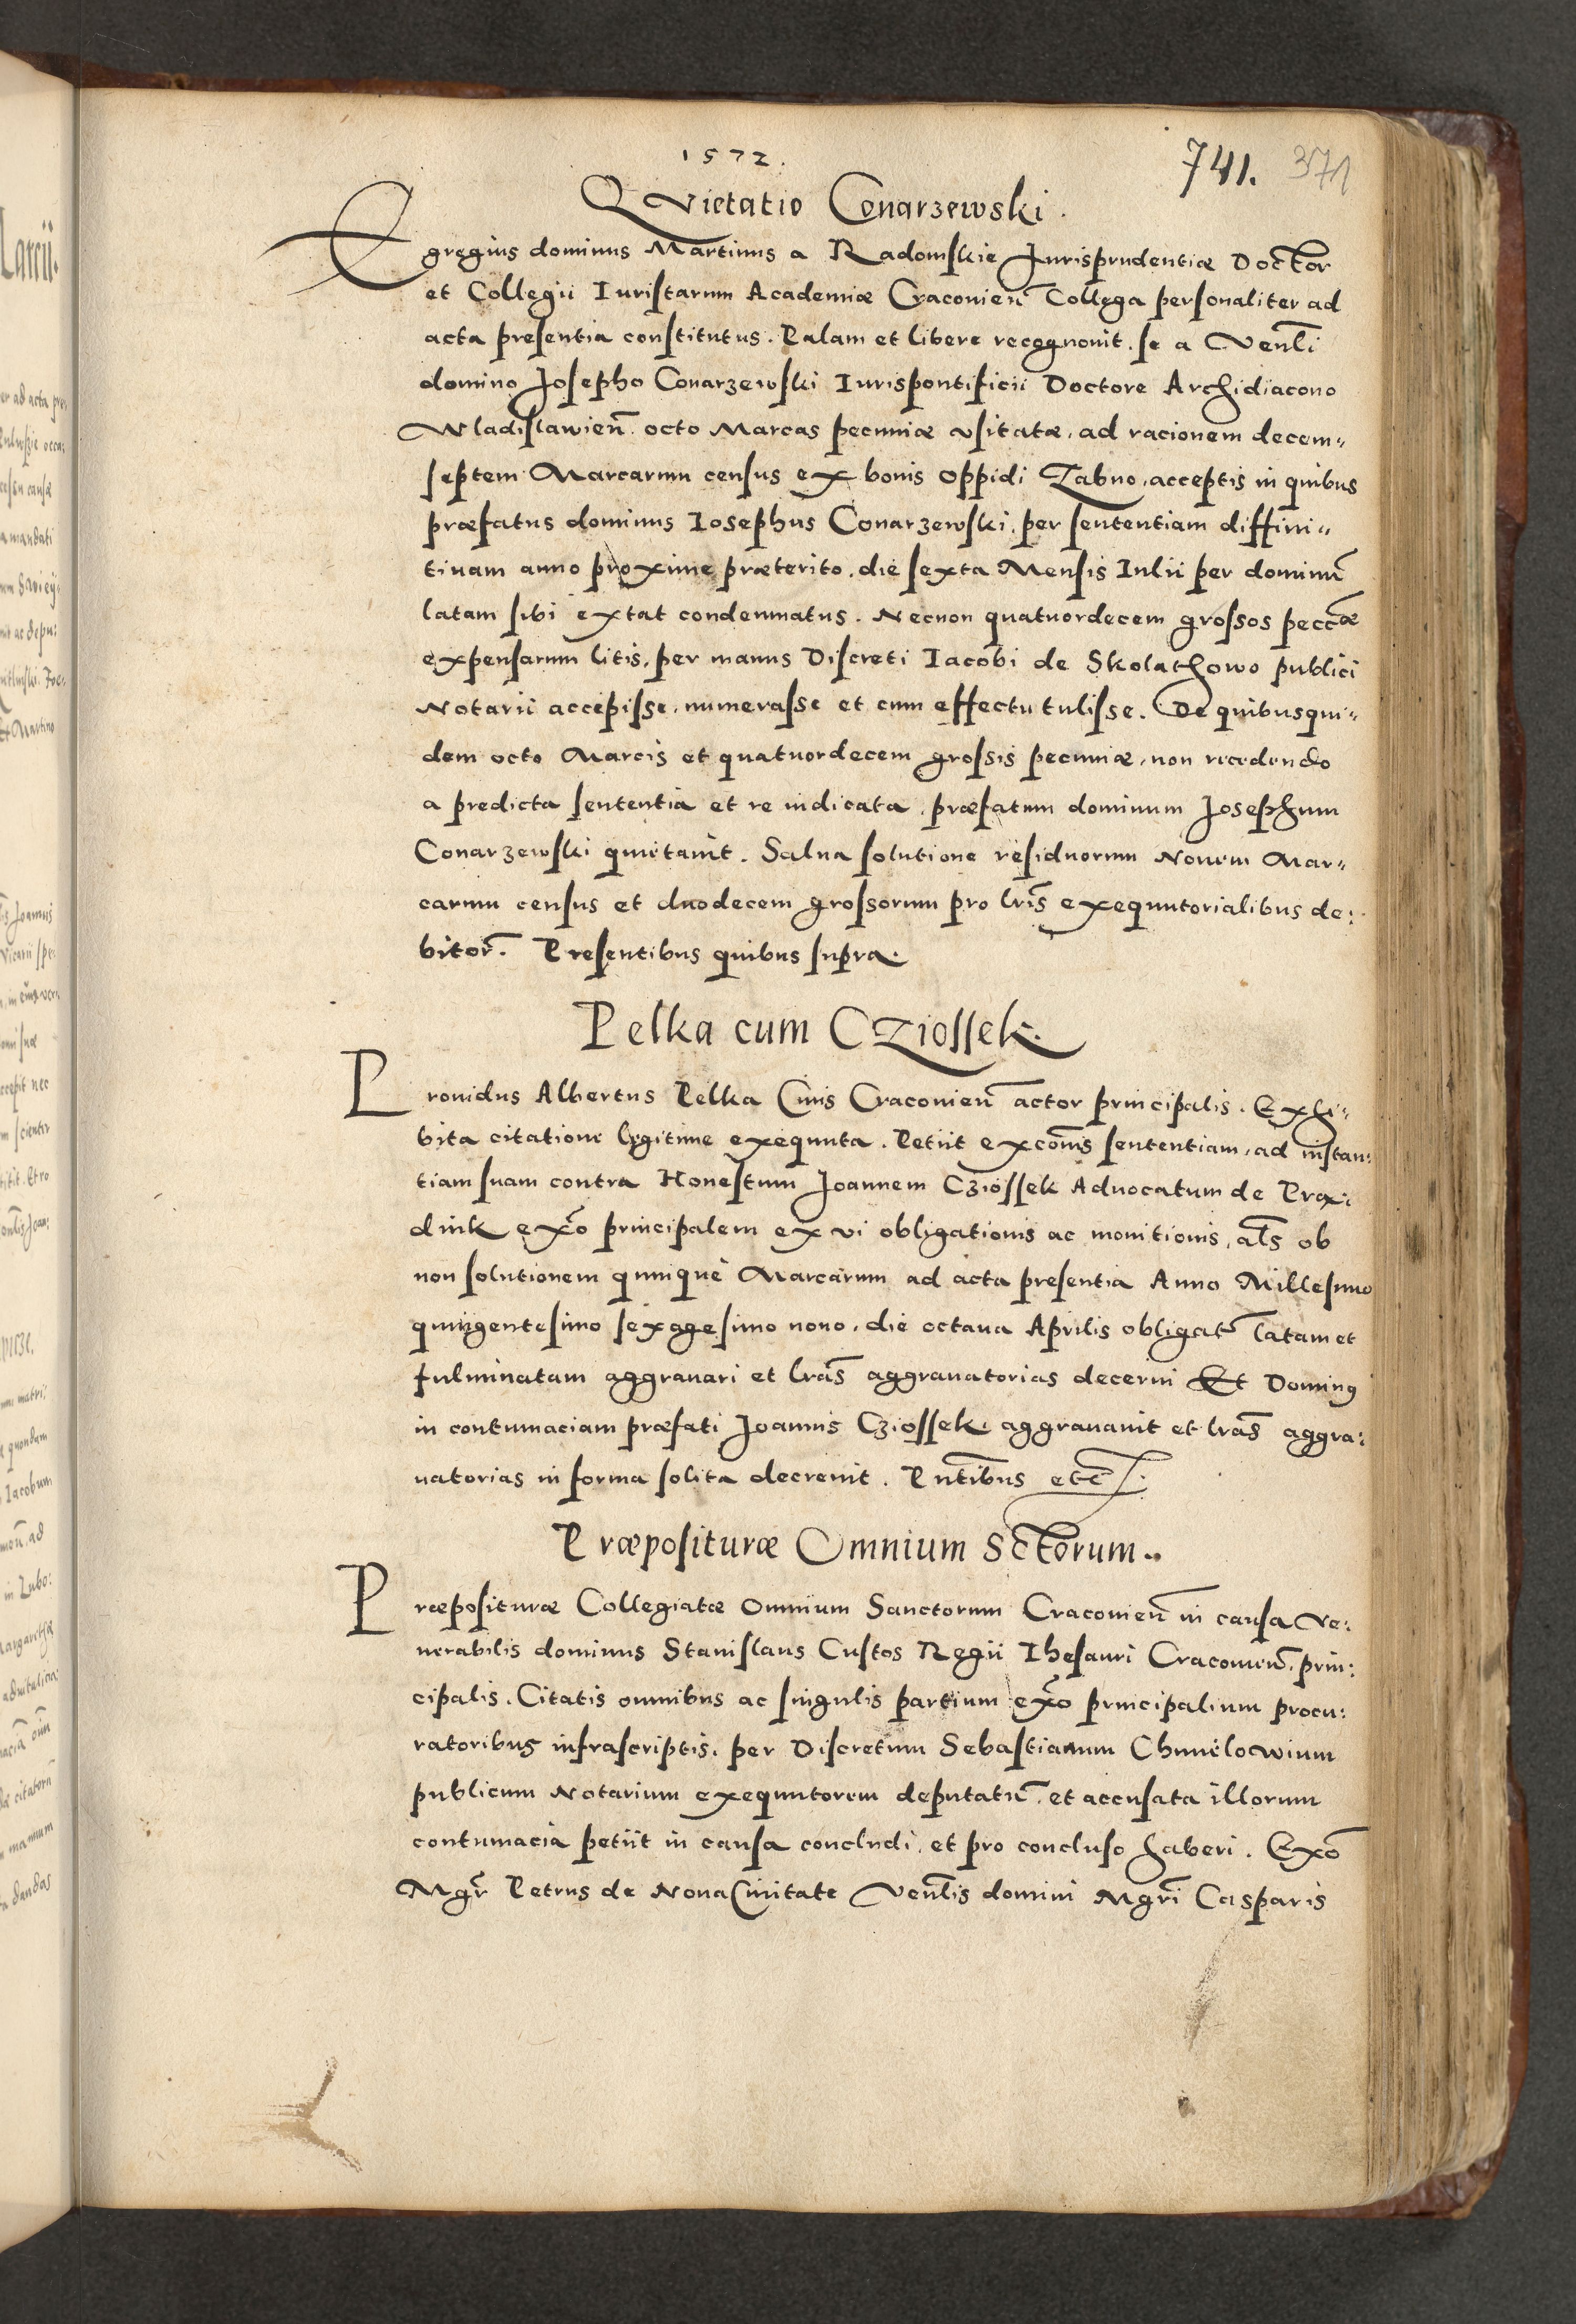 1572.
741. 371
QVietatio Conarzewski.
Egregius dominus Martinus a Radomskie Jurisprudentiæ Doctor
et Collegii Iuristarum Academiæ Craconien̄ Collega personaliter ad
acta presentia constitutus. Palam et libere recognouit. se a Venl̄i
domino Josepho Conarzewski Iurispontificii Doctore Archidiacono
Wladislawien̄. octo Marcas pecuniæ vsitatæ, ad racionem decem„
septem Marcarum census ex bonis oppidi Zabno, acceptis in quibus
præfatus dominus Iosephus Conarzewski. per sententiam diffini„
tiuam anno proxime præterito. die sexta Mensis Iulii per dominū
latam sibi extat condemnatus. Necnon quatuordecem grossos pecc̄æ
expensarum litis, per manus Discreti Iacobi de Skolathowo publici
Notarii accepisse, numerasse et cum effectu tulisse. De quibusqui„
dem octo Marcis et quatuordecem grossis pecuniæ, non recedendo
a predicta sententia et re iudicata, præfatum dominum Josephum
Conarzewski quietauit. Salua solutione residuorum Nouem Mar„
carum census et duodecem grossorum pro lr̄is exequutorialibus de:
bitor̄. Presentibus quibus supra.
Pelka cum CZiossek.
Prouidus Albertus Pelka Ciuis Craconien̄ actor principalis. Exhi„
bita citatione legitime exequuta. Petiit excōm̄s sententiam, ad instan:
tiam suam contra Honestum Joannem Cziossek Aduocatum de Prax:
dink ex̄o principalem ex vi obligationis ac monitionis, al̄s ob
non solutionem quinque Marcarum ad acta presentia Anno Millesimo
quingentesimo sexagesimo nono. die octaua Aprilis obligat̄ latam et
fulminatam aggrauari et lrās aggrauatorias decerni Et Dominꝯ
in contumaciam præfati Joannis Cziossek aggrauauit et lrās aggra:
uatorias in forma solita decreuit. Pn̄tibus etc̄.
Præposituræ Omnium Sc̄torum..
Præposituræ Collegiatæ Omnium Sanctorum Craconien̄ in causa Ve:
nerabilis dominus Stanislaus Custos Regii Thesauri Craconien̄. prin:
cipalis. Citatis omnibus ac singulis partium ex̄o principalium procu:
ratoribus infrascriptis. per Discretum Sebastianum Chmielowium
publicum Notarium exequutorem deputatū. et accusata illorum
contumacia petiit in causa concludi, et pro concluso haberi. Exō
Mgr̄ Petrus de Noua Ciuitate Venl̄is domini Mgr̄i Casparis